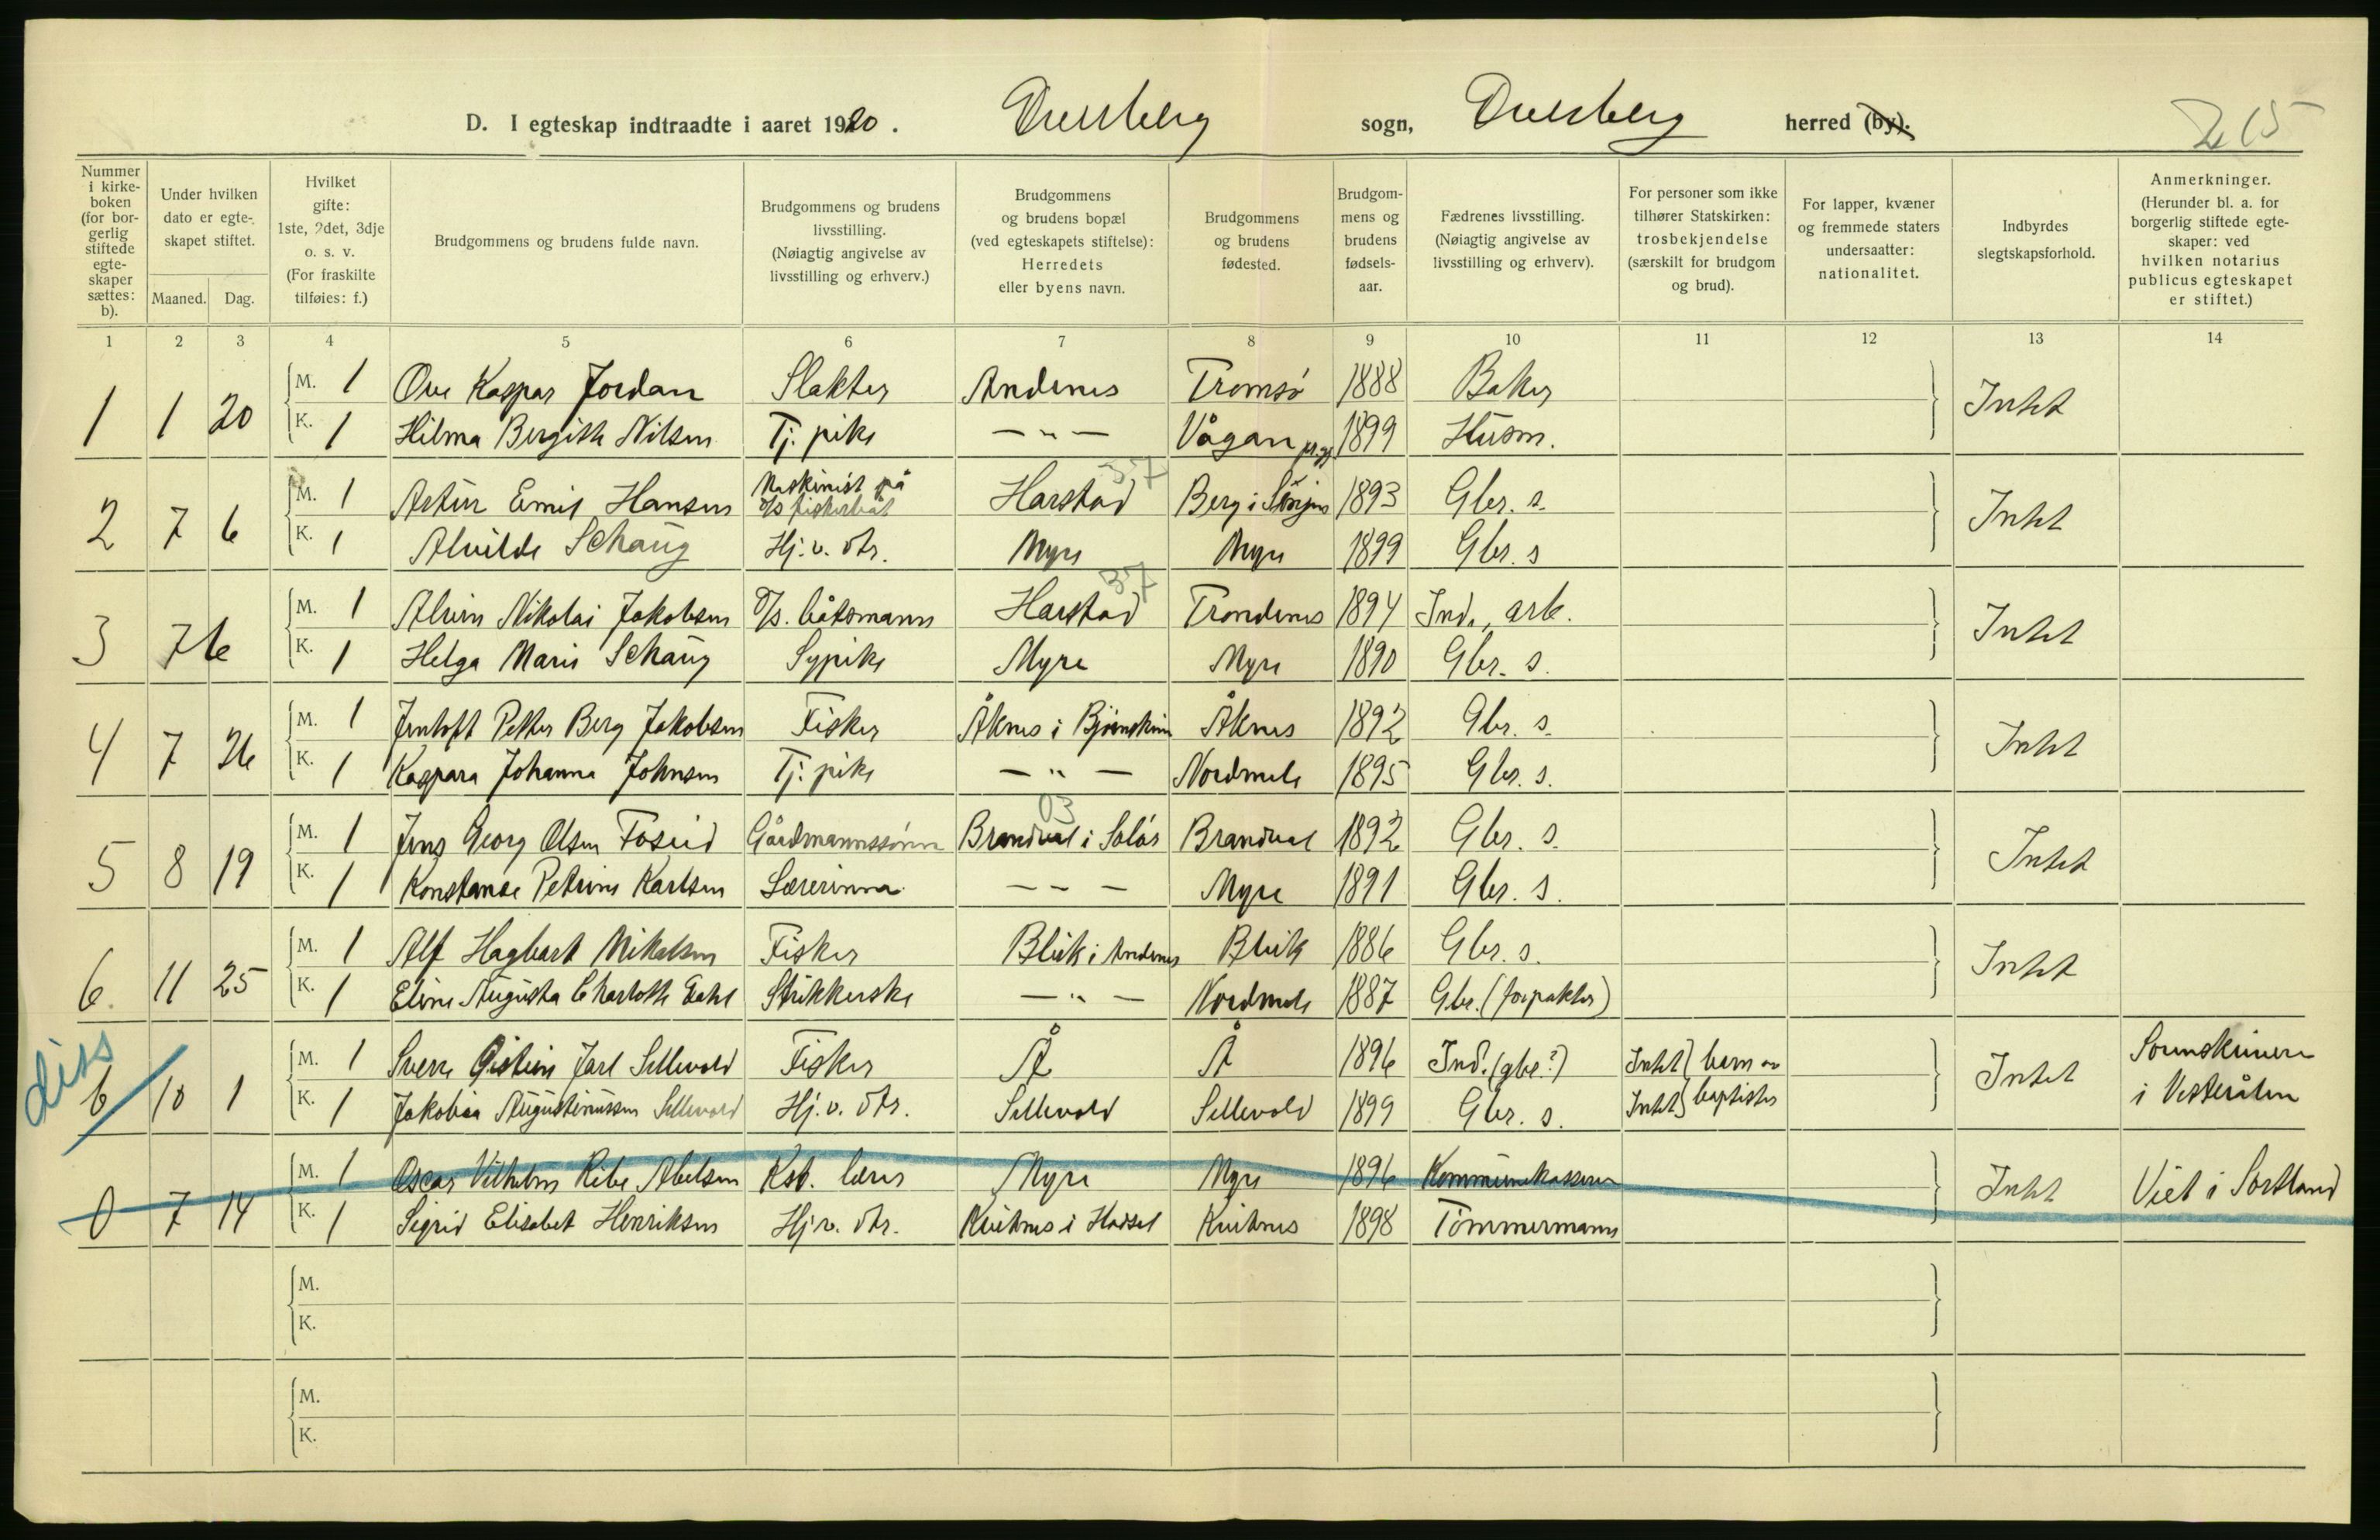 D. I egteskap indtraadte i aaret 1920. Dverberg sogn, Dverberg herred (by). 215
Nummer i kirkeboken (for borgerlig stiftede egteskaper sættes: b).
Under hvilken dato er egteskapet stiftet.
Maaned. Dag.
Hvilket gifte: 1ste, 2det, 3dje o. s. v. (For fraskilte tilføies: f.)
Brudgommens og brudens fulde navn.
Brudgommens og brudens livsstilling. (Nøiagtig angivelse av livsstilling og erhverv.)
Brudgommens og brudens bopæl (ved egteskapets stiftelse): Herredets eller byens navn.
Brudgommens og brudens fødested.
Brudgommens og brudens fødselsaar.
Fædrenes livsstilling. (Nøiagtig angivelse av livsstilling og erhverv).
For personer som ikke tilhører Statskirken: trosbekjendelse (særskilt for brudgom og brud).
For lapper, kvæner og fremmede staters undersaatter: nationalitet.
Indbyrdes slegtskapsforhold.
Anmerkninger. (Herunder bl. a. for borgerlig stiftede egteskaper: ved hvilken notarius publicus egteskapet er stiftet.)
1 2 3 4 5 6 7 8 9 10 11 12 13 14
1 1 20 M. 1 Ove Kaspar Jordan Slakter Andenes Tromsø 1888 Baker Intet
K. 1 Hilma Bergith Nilsen Tj. pike — „ — Vågan 1899 Husm.
2 7 6 M. 1 Artur Emil Hansen Maskinist på d/s fiskerbåt Harstad 37 Berg i Senjen 1893 Gbr. s. Intet
K. 1 Alvilde Schaug Hj. v. dtr. Myre Myre 1899 Gbr. s
3 7 6 M. 1 Alvin Nikolai Jakobsen D/s. båtsmann Harstad 37 Trondenes 1894 Ind., arb. Intet
K. 1 Helga Marie Schaug Sypike Myre Myre 1890 Gbr. s.
4 7 26 M. 1 Jentoft Petter Berg Jakobsen Fisker Åknes i Bjørnskinn Åknes 1892 Gbr. s. Intet
K. 1 Kaspara Johanna Johnsen Tj. pike — „ — Nordmele 1895 Gbr. s.
5 8 19 M. 1 Jens Georg Olsen Fosseid Gårdmannssønn Brandval i Solør 03 Brandval 1892 Gbr. s. Intet
K. 1 Konstanse Petrine Karlsen Lærerinna — — — Myre 1891 Gbr. s.
6. 11 25 M. 1 Alf Hagbart Mikalsen Fisker Bleik i Andenes Bleik 1886 Gbr. s. Intet
K. 1 Eline Augusta Charlotte Dahl Strikkerske — „ — Nordmele 1887 Gbr. (forpakter)
diss
b 10 1 M. 1 Sverre Øistein Jarl Sellevold Fisker Å Å 1896 Ind. (gbr.?) Intet } barn av Intet Sounskriveren
K. 1 Jakobia Augustinussen Sellevold Hj. v. dtr. Sellevold Sellevold 1899 Gbr. s. Intet } baptister i Vesterålen
0 7 14 M. 1 Oscar Vilhelm Ribe Abelsen Kst. lærer Myre Myre 1896 Kommunekasserer Intet Viet i Sortland
K. 1 Sigrid Elisabet Henriksen Hj. v. dtr. Kvitnes i Hadsel Kvitnes 1898 Tømmermann
M.
K.
M.
K.